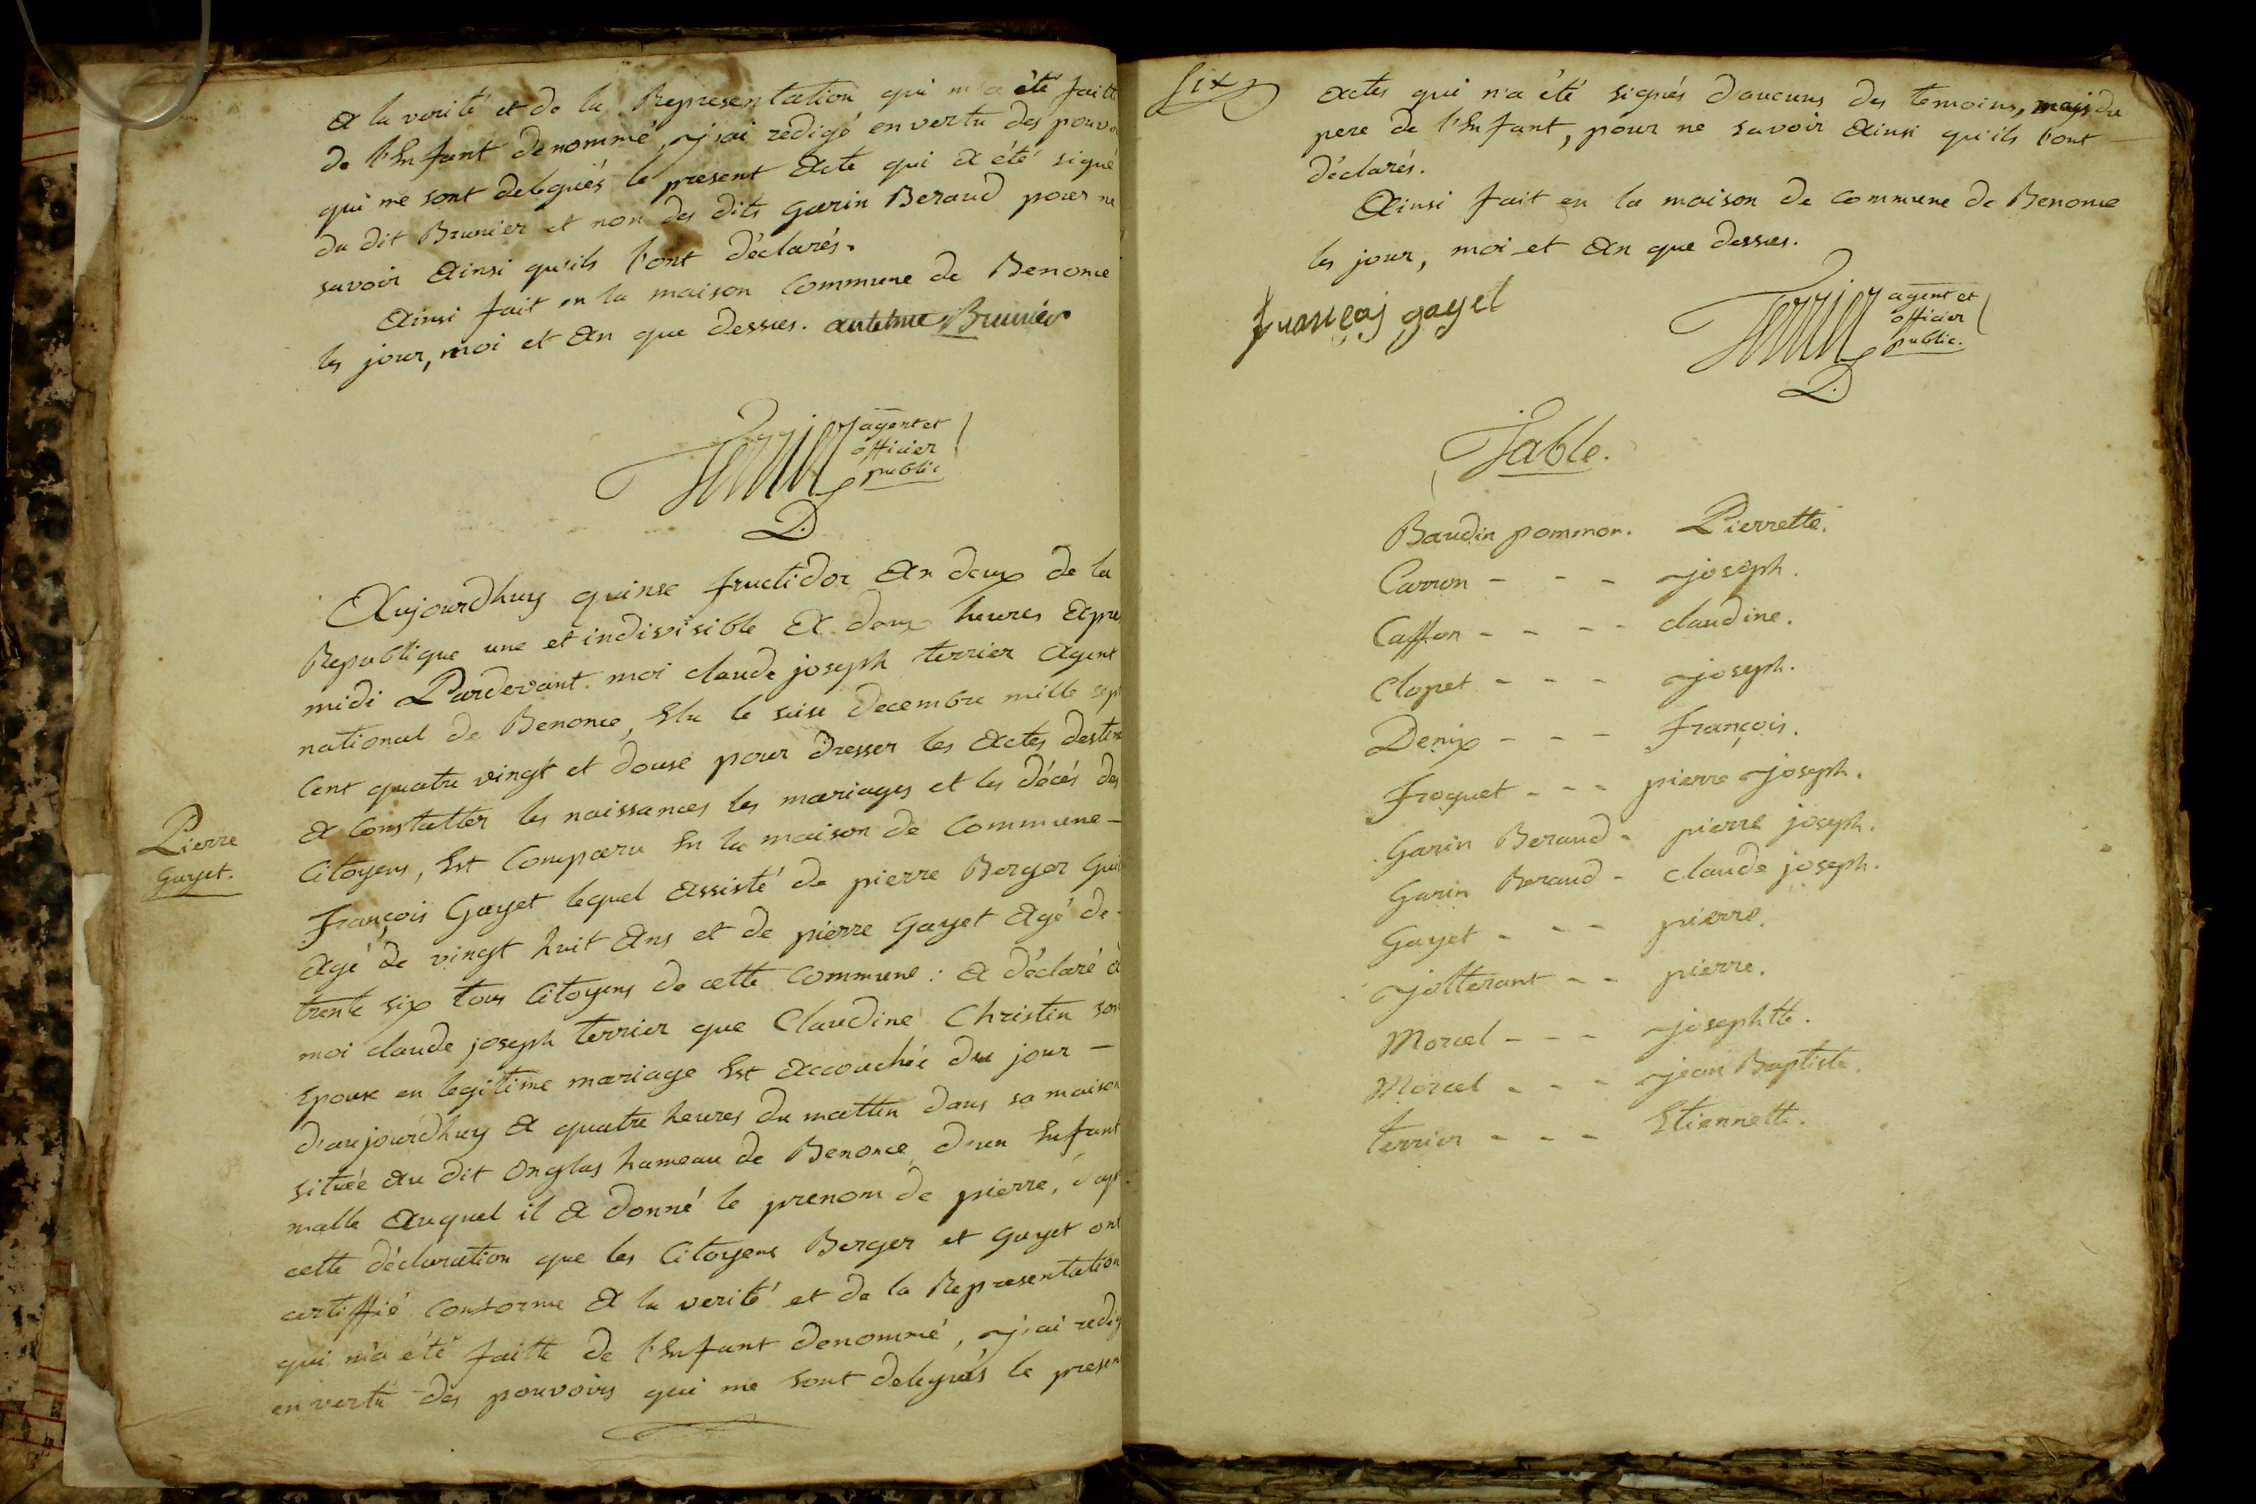 a la verité et de la Representation qui m'a été faitte
de l'Enfant denommé, j'ai redigé en vertu des pouvoi
qui me sont delegués le present acte qui a été signé
du dit Brunier et non des dits Garin Beraud pour ne
savoir ainsi qu'ils l'ont déclarés.
Ainsi fait en la maison Commune de Benonce
les jour, moi et an que dessus. antelme Brunier
Terrier agent et
officier
public
Pierre
Gayet.
Aujourdhuy quinse fructidor an deux de la
Republique une et indivisible a deux heures apres
midi Pardevant moi claude joseph terrier agent
national de Benonce, Elu le seise decembre mille sept
Cent quatre vingt et douse pour dresser les actes destiné
a Constatter les naissances les mariages et les décés des
Citoyens, Est Comparu En la maison de Commune
François Gayet lequel assisté de pierre Berger
agé de vingt huit ans et de pierre Gayet agé de
trente six tous Citoyens de cette Commune : a déclaré a
moi claude joseph terrier que Claudine Christin son
Epouse en legitime mariage Est accouchée du jour
d'aujourdhuy a quatre heures du mattin dans sa maison
située au dit onglas hameau de Benonce, d'un Enfant
malle auquel il a donné le prenom de pierre, d'apr
cette déclaration que les Citoyens Berger et Gayet ont
certiffié conforme a la verité et de la Representation
qui m'a été faitte de l'Enfant denommé, j'ai redig
en vertu des pouvoirs qui me sont delegués le presen
six
actes qui n'a été signés d'aucuns des temoins, mais du
pere de l'Enfant, pour ne savoir ainsi qu'ils l'ont
déclarés.
Ainsi fait en la maison de Commune de Benonce
les jour, moi et an que dessus.
françois gayet
Terrier agent et
officier
public.
Table.
Baudin pommon. Pierrette.
Carron - - - joseph.
Caffon - - - - claudine.
Clopet - - - joseph.
Denix - - - françois.
Froquet - - - pierre joseph.
Garin Beraud - pierre joseph.
Garin Beraud - claude joseph.
Gayet - - - pierre.
jotterant - - pierre.
Morcel - - - josephtte.
Morcel - - - jean Baptiste.
terrier - - - Etiennette.